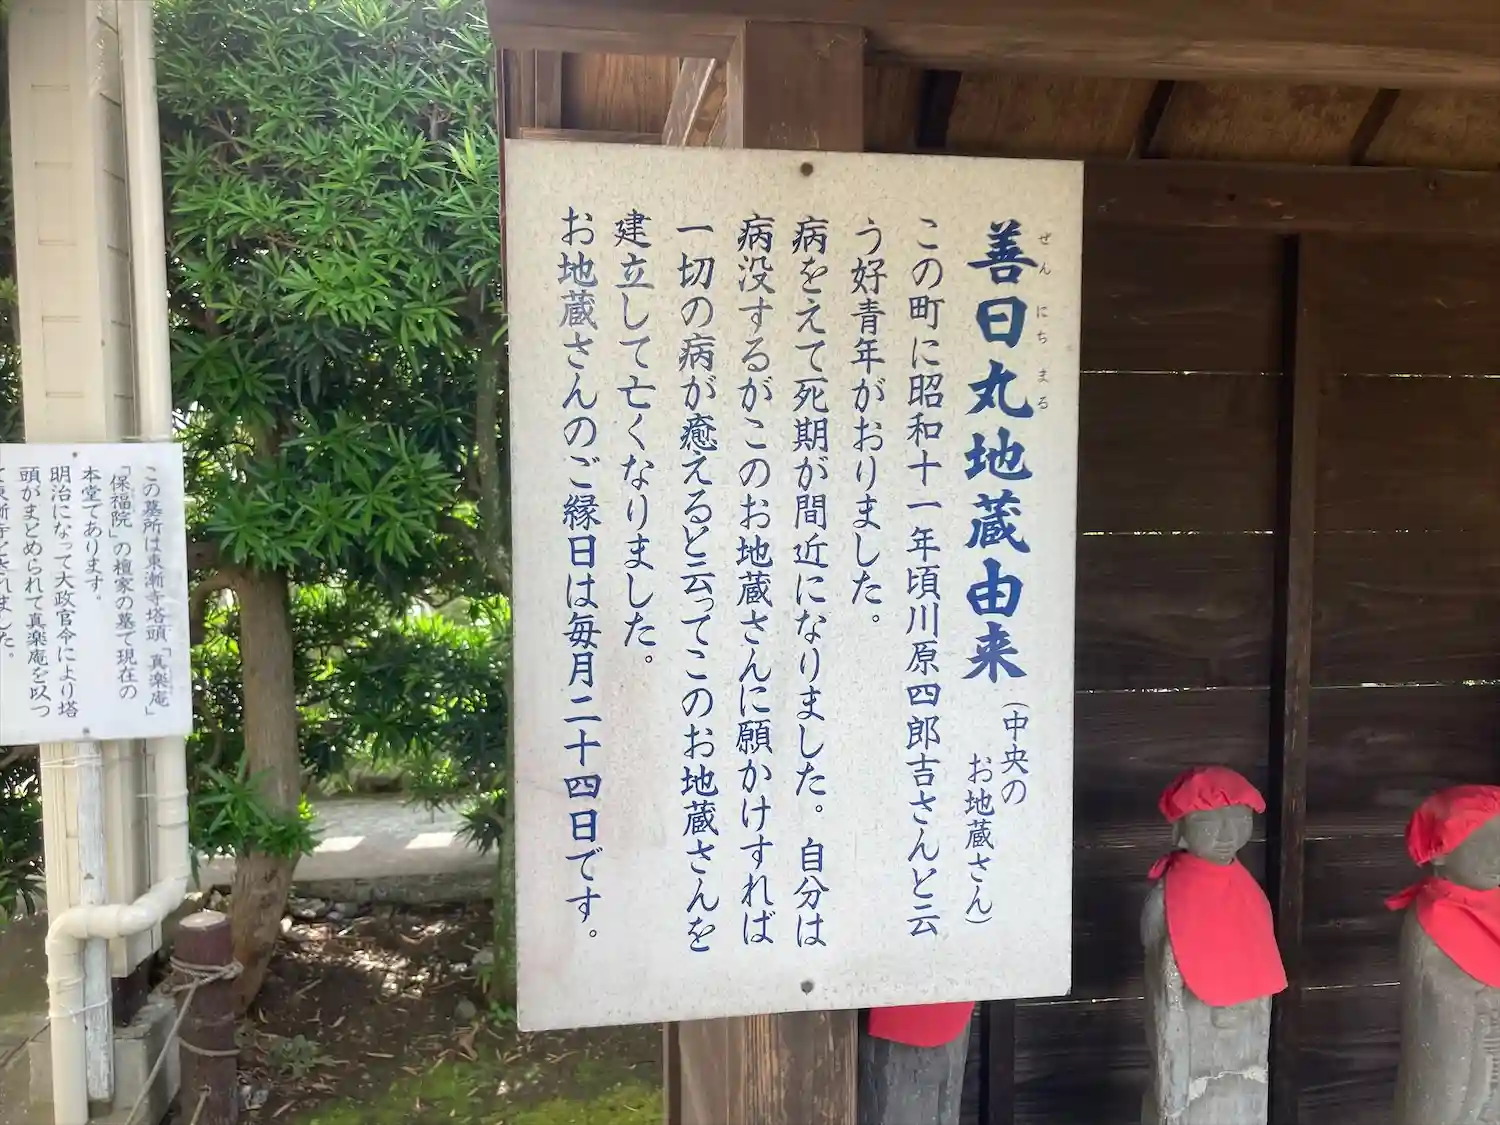 善日丸地蔵由来
ぜんにちまる
(中央の
お地蔵さん)
この町に昭和十一年頃川原四郎吉さんと云
う好青年がおりました。
病をえて死期が間近になりました。自分は
病没するがこのお地蔵さんに願かけすれば
一切の病が癒えると云ってこのお地蔵さんを
建立して亡くなりました。
お地蔵さんのご縁日は毎月二十四日です。
この墓所は東漸寺塔頭「真楽庵」
「保福院」の檀家の墓で現在の
本堂であります。
明治になって大政官令により塔
頭がまとめられて真楽庵を以っ
て東漸寺とされました。